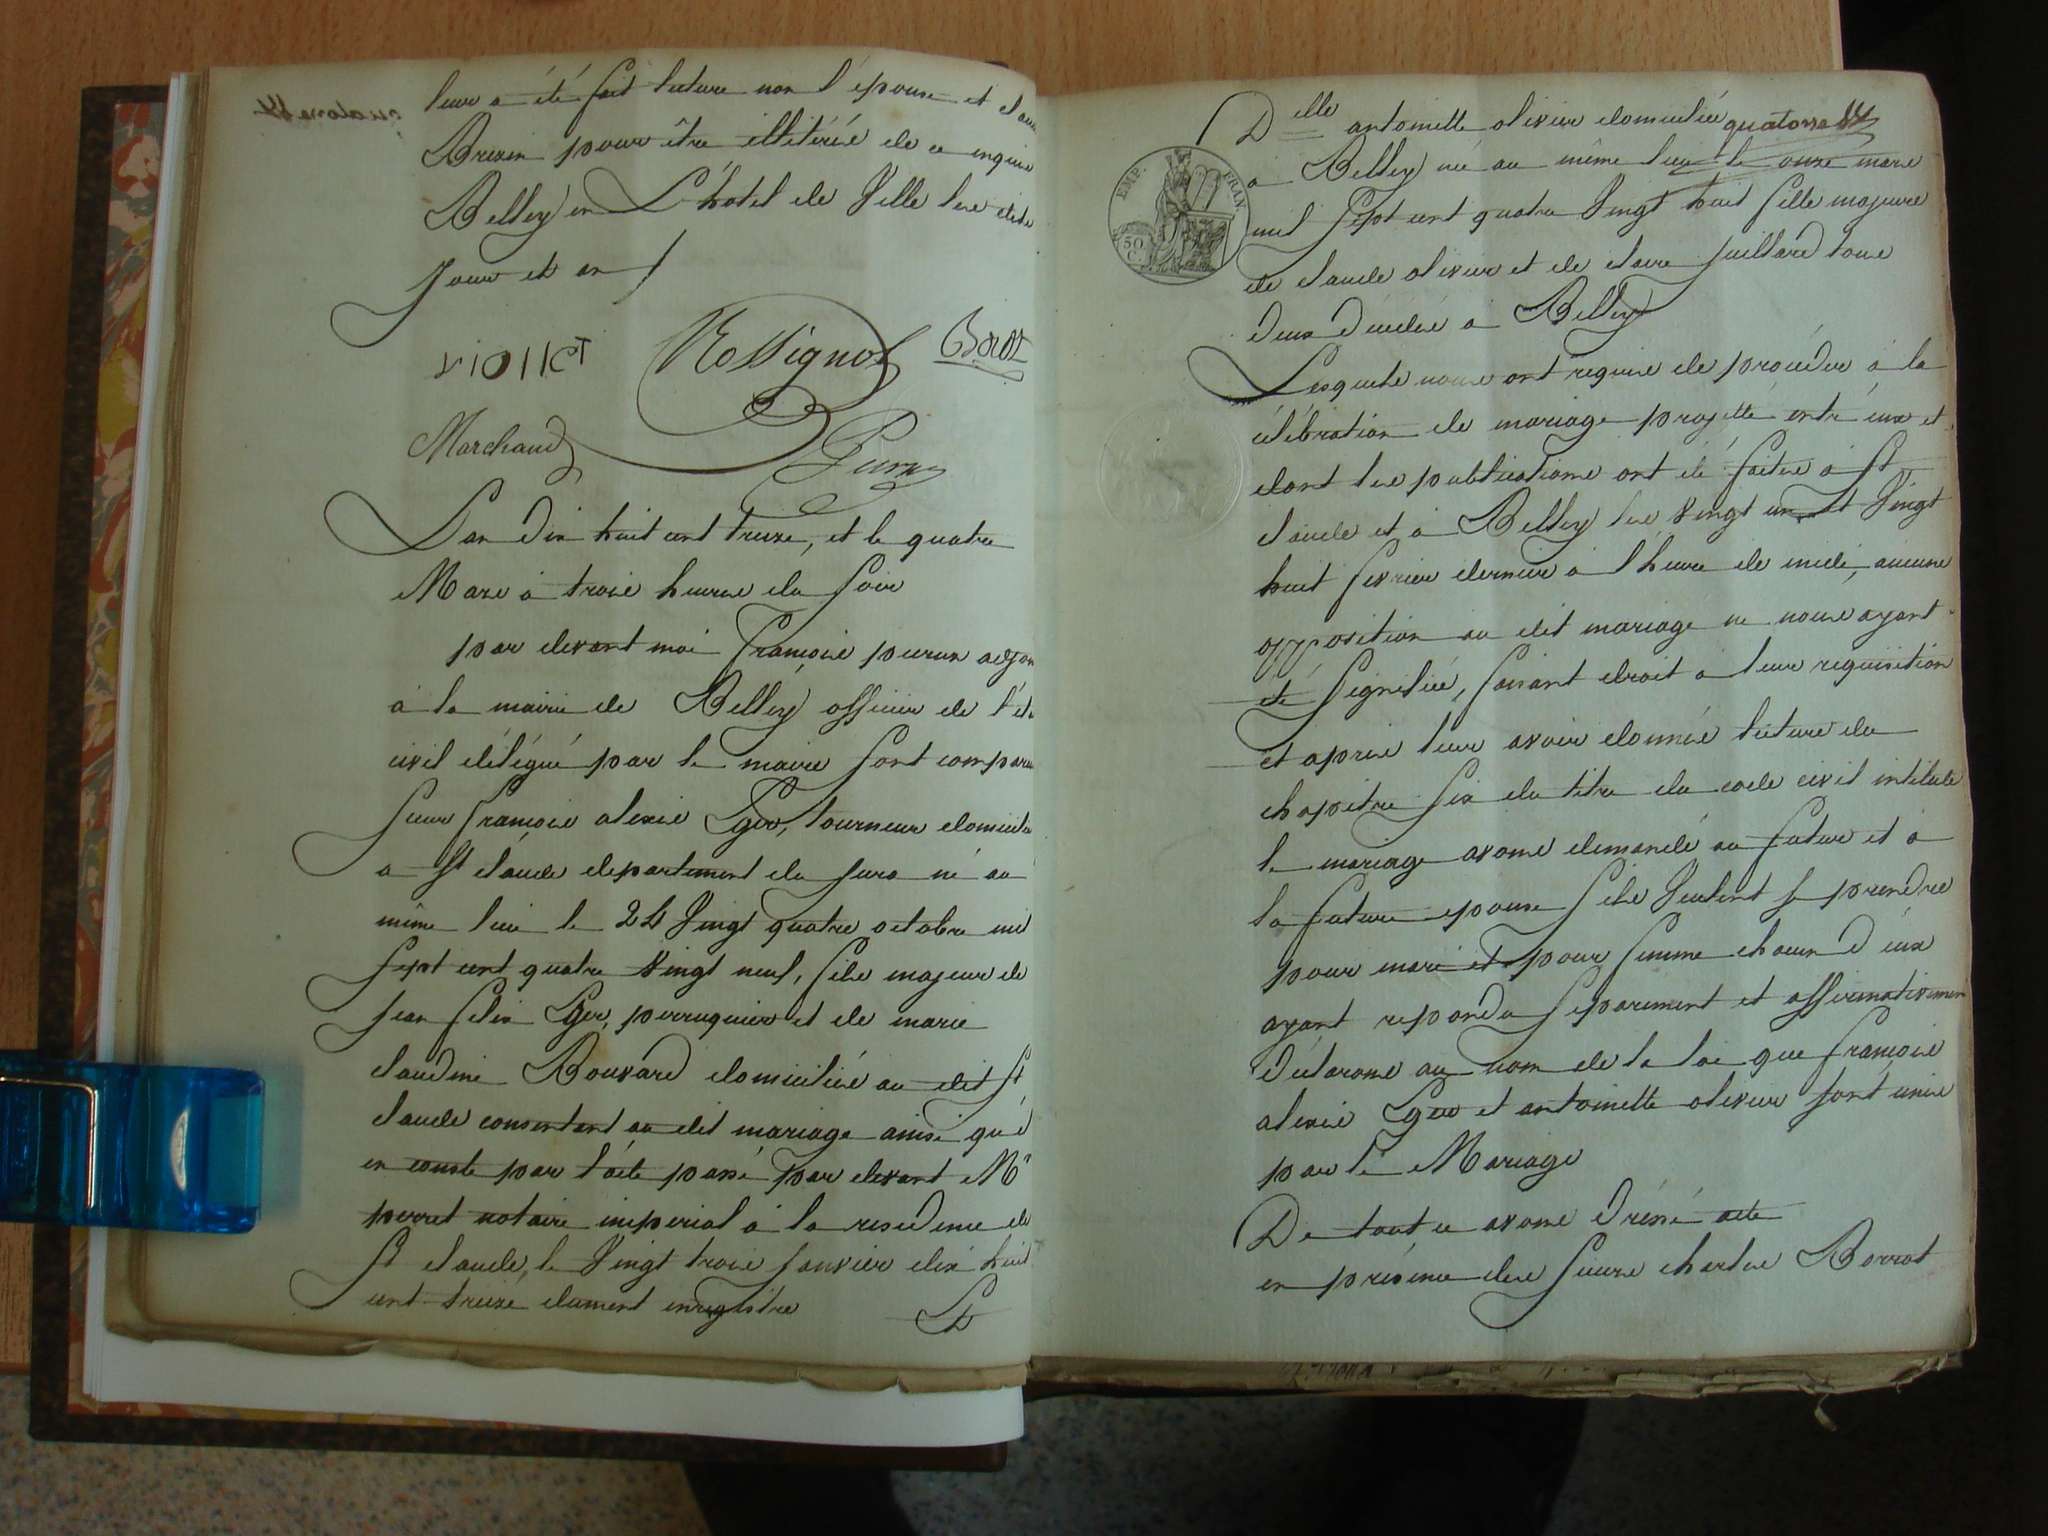 leur a été fait lecture non l'épouse et
pour être illitérée de ce enquis
Belley en L'hotel de Ville les dits
Jour et an
VIOLLET Rossignol
Marchand
L'an dix huit cent treize, et le quatre
Mars à trois heures du soir
par devant moi François adjoin
à la mairie de Belley officier de l'éta
civil délégué par le maire sont comparu
sieur françois alexis Eger, tourneur domicilié
a St claude departement du Jura né au
même lieu le 24 Vingt quatre octobre mil
sept cent quatre vingt neuf, fils majeur de
jean felix Eger, perruquier et de marie
claudine Bouvard domiciliés au dit St
claude consentant au dit mariage ainsi qu'il
en conste par l'acte passé par devant Me
perret notaire imperial à la residence de
St claude, le Vingt trois janvier dix huit
cent treize dument enregistré Et
quatorze 14
Delle antoinette olivier domiciliée
EMP. FRAN.
50 C.
à Belley née au même lieu le onze mars
mil sept cent quatre Vingt huit fille majeure
de claude olivier et de claire juillard tous
deux décédés à Belley
Lesquels nous ont requis de procéder à la
célébration de mariage projetté entré eux et
dont les publications ont été faites à St
claude et à Belley les vingt un et Vingt
huit fevrier dernier à l'heure de midi, aucune
opposition au dit mariage ne nous ayant
été signifiée, faisant droit à leur requisition
et après leur avoir donnés lecture du
chapitre six du titre du code civil intitulé
le mariage avons demandé au futur et à
la future epouse s'ils veulent se prendre
pour mari et pour femme chacun d'eux
ayant repondu separement et affirmativemen
déclarons au nom de la loi que françois
alexis Eger et antoinette olivier sont unis
par le Mariage
De tout ce avons dréssé acte
en présence des sieurs charles Borrot